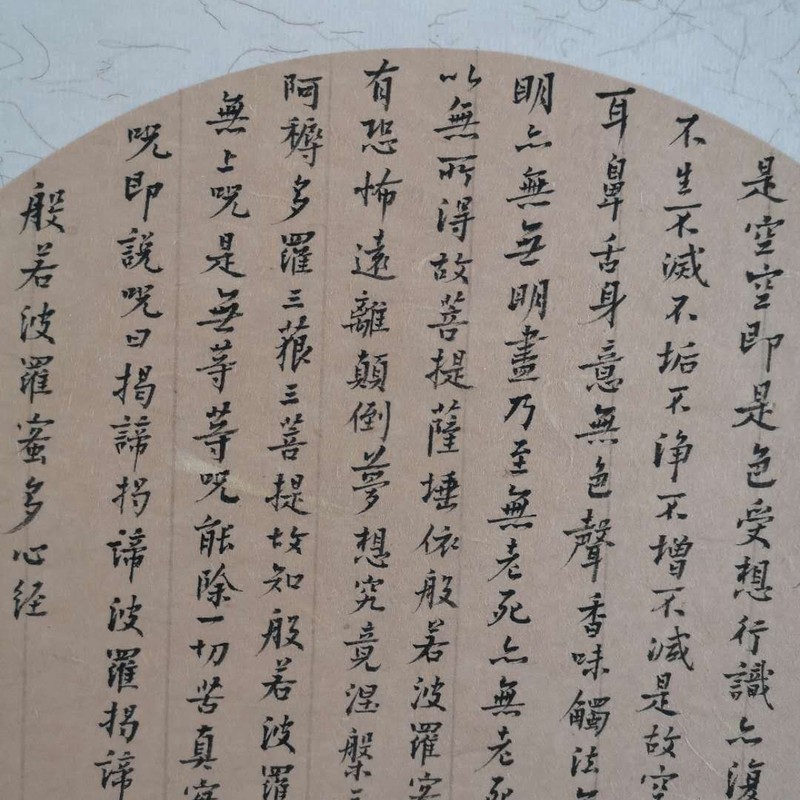 是空空即是色受想行識亦復
不生不滅不垢不淨不增不減是故空
耳鼻舌身意無色聲香味觸法
明亦無無明盡乃至無老死亦無老死
以無所得故菩提薩埵依般若波羅蜜
有恐怖遠離顛倒夢想究竟涅槃三
阿耨多羅三藐三菩提故知般若波羅
無上咒是無等等咒能除一切苦真實
咒即說咒曰揭諦揭諦波羅揭諦
般若波羅蜜多心経